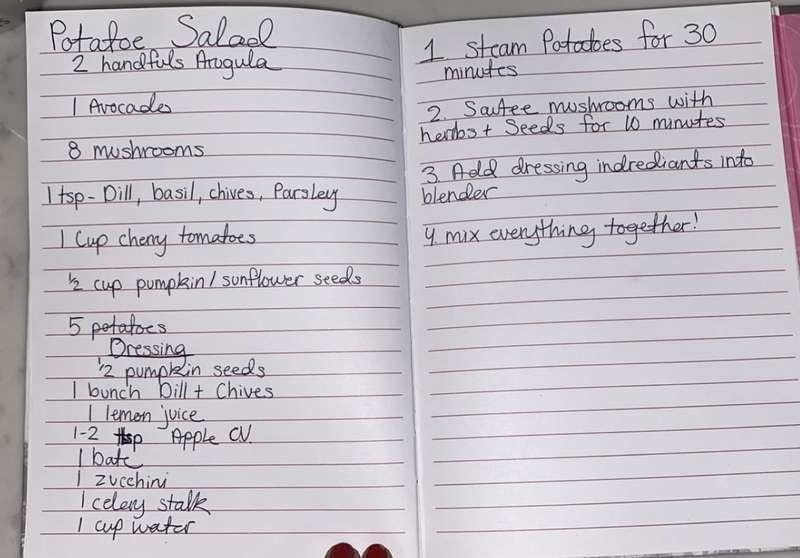 Potatoe Salad
2 handfuls Arugula
1 Avocado
8 mushrooms
1 tsp - Dill, basil, chives, Parsley
1 Cup cherry tomatoes
1/2 cup pumpkin/sunflower seeds
5 potatoes
Dressing
1/2 pumpkin seeds
1 bunch Dill + Chives
1 lemon juice
1-2 tsp Apple CV.
1 date
1 zucchini
1 celery stalk
1 cup water
1 Steam Potatoes for 30
minutes
2. Sautee mushrooms with
herbs + Seeds for 10 minutes
3 Add dressing indrediants into
blender
4. mix everything together!